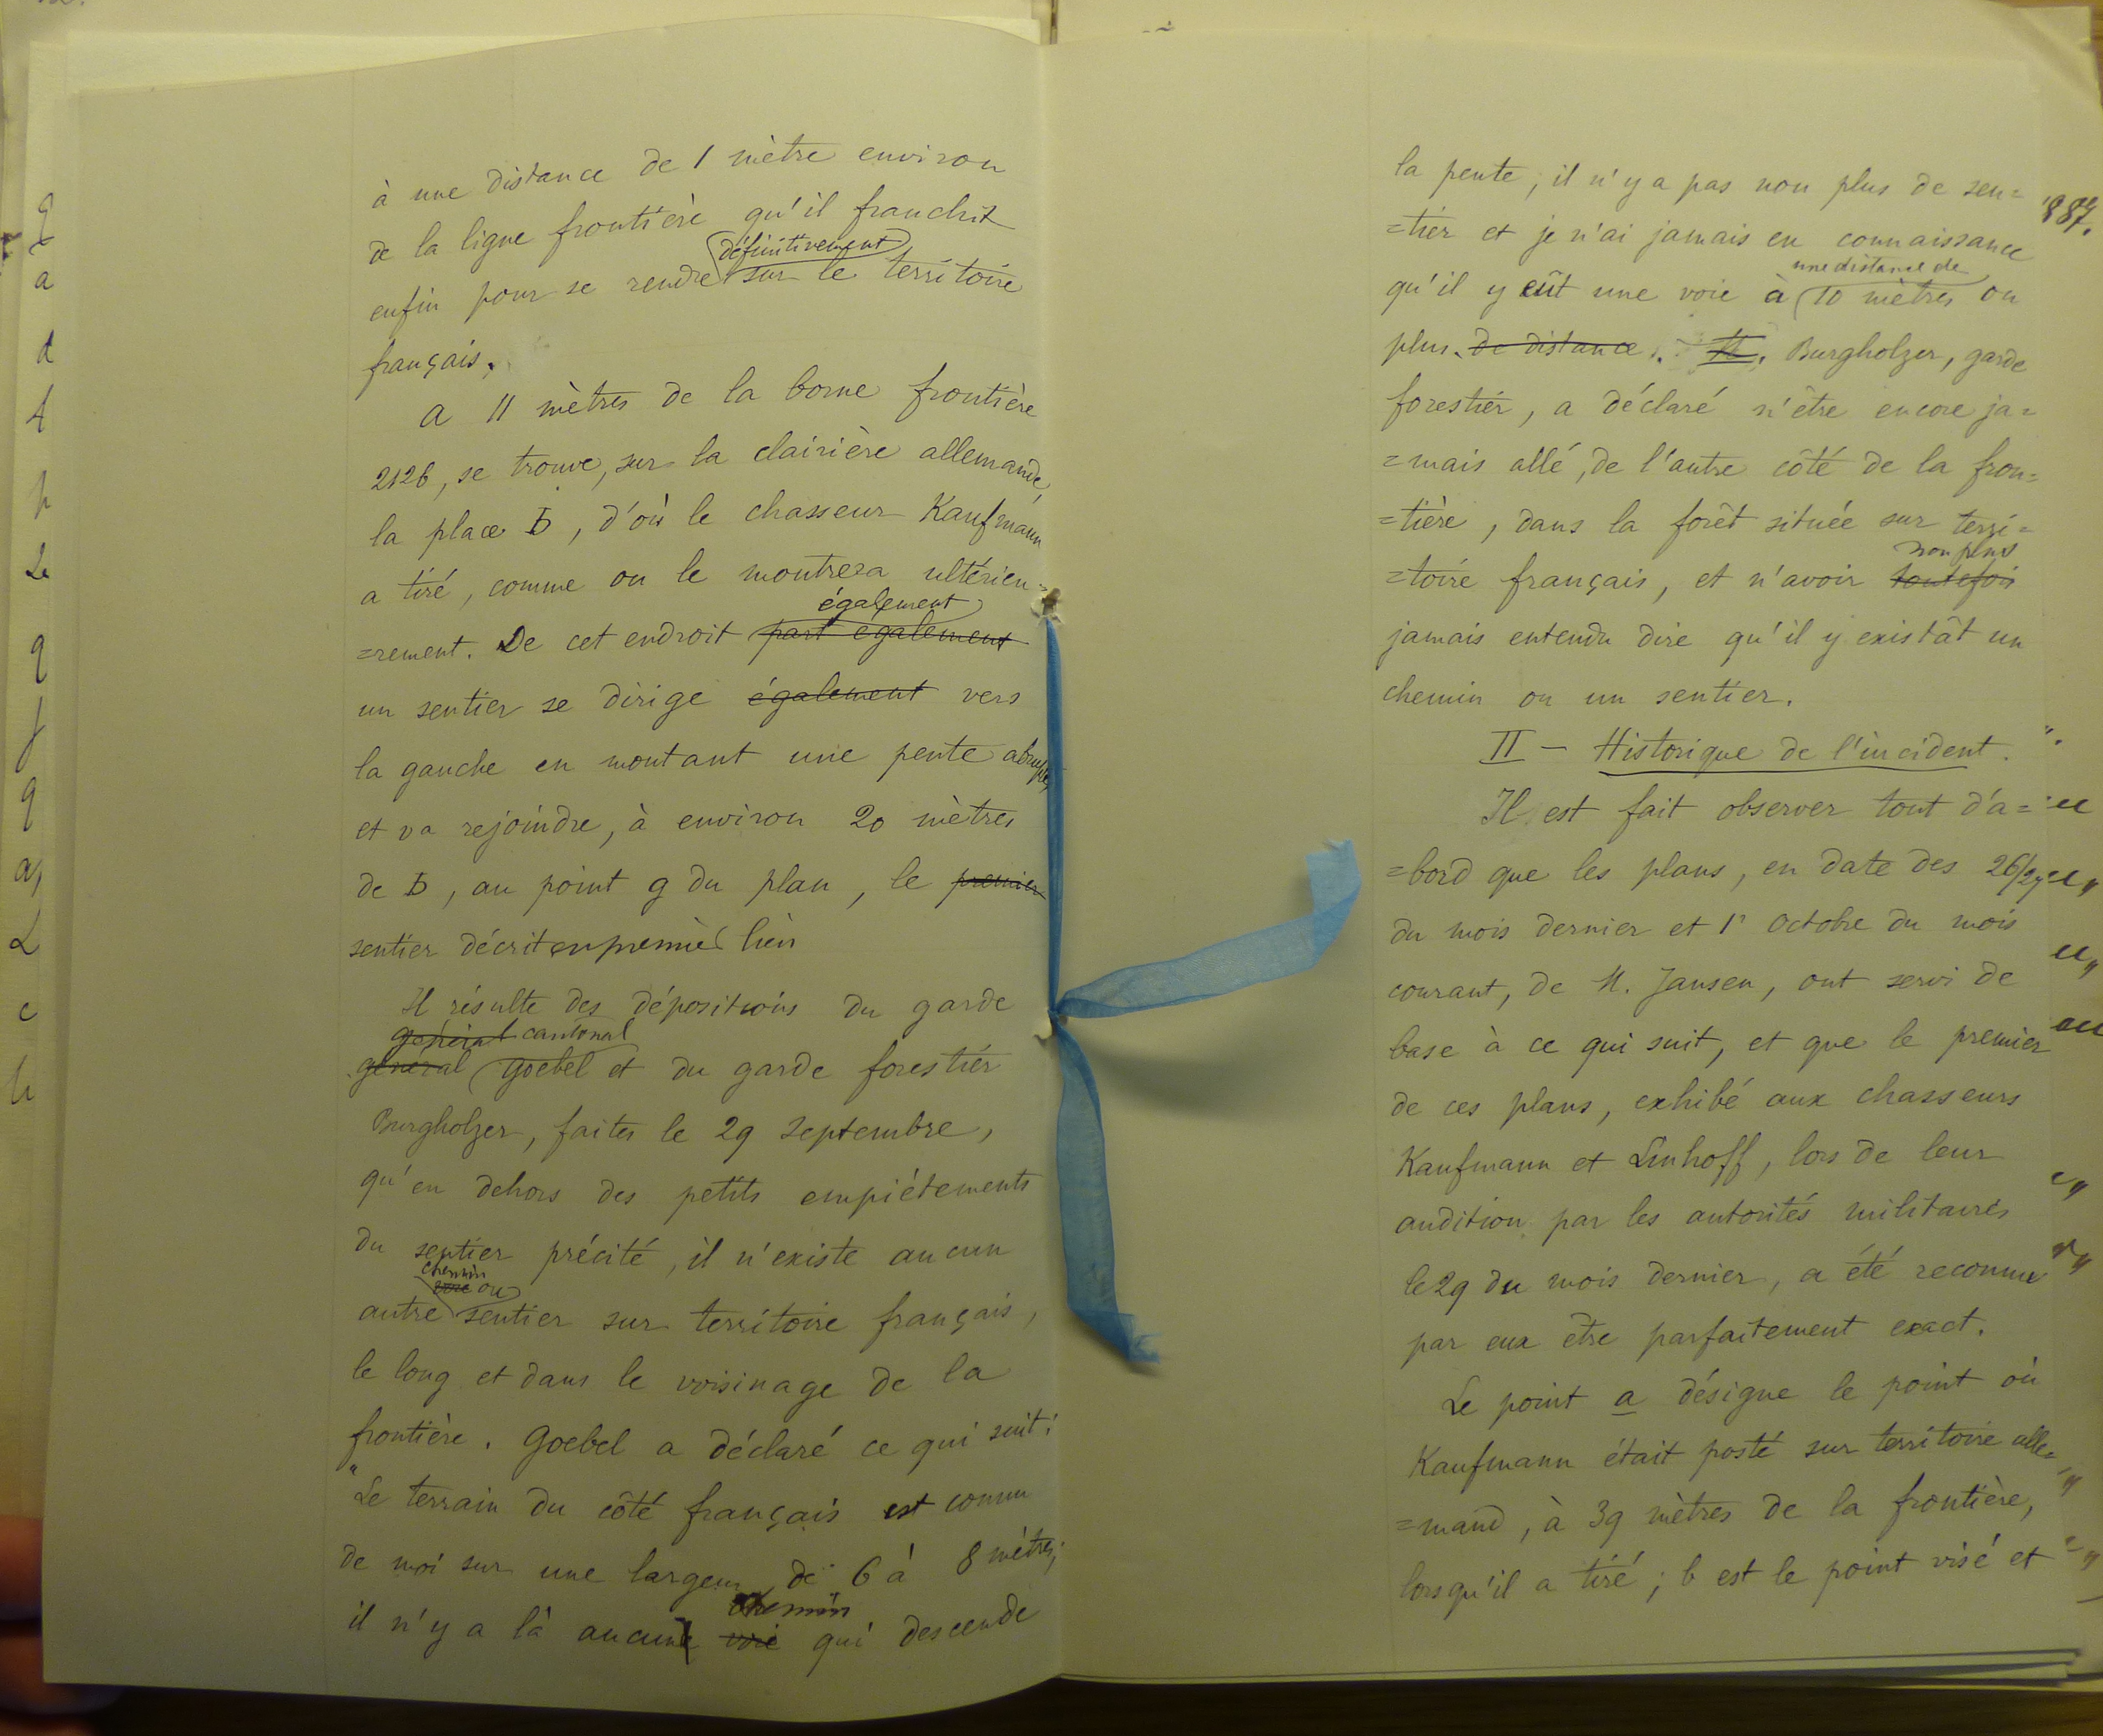 à une distance de 1 mètre environ
de la ligne frontière qu'il franchit
définitivement
enfin pour se rendre sur le territoire
français.
A 11 mètres de la borne frontière
2126, se trouve, sur la clairière allemande,
la place D, d'où le chasseur Kaufmann
a tiré, comme on le montrera ultérieu=
également
=rement. De cet endroit part également
un sentier se dirige également vers
la gauche en montant une pente abrupte,
et va rejoindre, à environ 20 mètres
de D, au point g du plan, le premier
sentier décrit en premier lieu
Il résulte des dépositions du garde
général cantonal
général Goebel et du garde forestier
Burgholzer, faites le 29 Septembre,
qu'en dehors des petits empiétements
du sentier précité, il n'existe aucun
chemin
voie ou
autre sentier sur territoire français,
le long et dans le voisinage de la
frontière. Goebel a déclaré ce qui suit:
"Le terrain du côté français est connu
de moi sur une largeur de 6 à 8 mètres;
chemin
il n'y a là aucune voie qui descende
la pente, il n'y a pas non plus de sen=
=tier et je n'ai jamais eu connaissance
une distance de
qu'il y eût une voie à 10 mètres ou
plus de distance. M. Burgholzer, garde
forestier, a déclaré n'être encore ja=
=mais allé, de l'autre côté de la fron=
=tière, dans la forêt située sur terri=
non plus
=toire français, et n'avoir toutefois
jamais entendu dire qu'il y existât un
chemin ou un sentier.
II - Historique de l'incident.
Il est fait observer tout d'a=
=bord que les plans, en date des 26/27
du mois dernier et 1r Octobre du mois
courant, de M. Jansen, ont servi de
base à ce qui suit, et que le premier
de ces plans, exhibé aux chasseurs
Kaufmann et Linhoff, lors de leur
audition par les autorités militaires
le 29 du mois dernier, a été reconnu
par eux être parfaitement exact.
Le point a désigne le point où
Kaufmann était posté sur territoire alle=
=mand, à 39 mètres de la frontière,
lorsqu'il a tiré; b est le point visé et